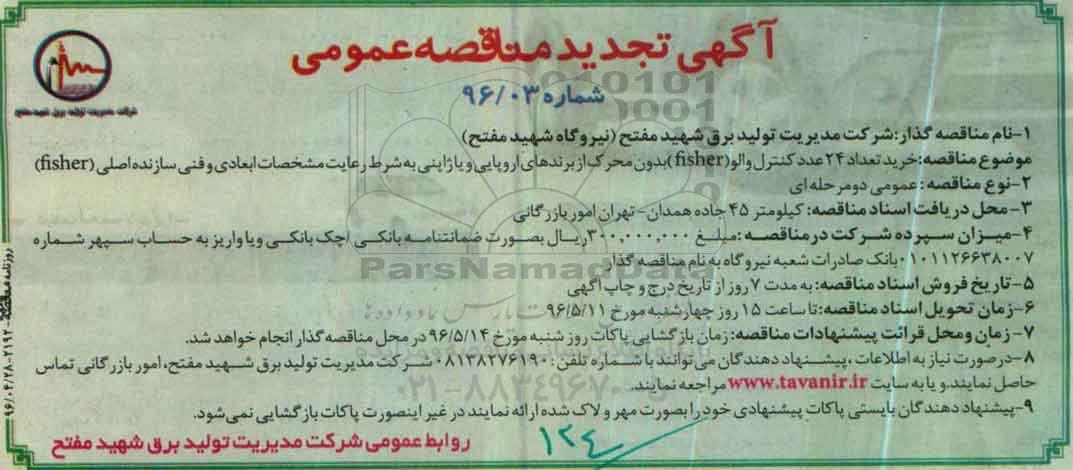 آگهی تجدید مناقصه عمومی
شماره ۹۶/۰۳
شرکت مدیریت تولید برق شهید مفتح
۱-نام مناقصه گذار: شرکت مدیریت تولید برق شهید مفتح (نیروگاه شهید مفتح)
موضوع مناقصه: خرید تعداد ۲۴ عدد کنترل والو (fisher) بدون محرک از برندهای اروپایی و یا ژاپنی به شرط رعایت مشخصات ابعادی و فنی سازنده اصلی (fisher)
۲-نوع مناقصه: عمومی دو مرحله ای
۳-محل دریافت اسناد مناقصه: کیلومتر ۴۵ جاده همدان- تهران امور بازرگانی
۴-میزان سپرده شرکت در مناقصه: مبلغ ۳۰۰,۰۰۰,۰۰۰ ریال بصورت ضمانتنامه بانکی / چک بانکی و یا واریز به حساب سپهر شماره
۰۱۰۱۱۲۶۶۳۸۰۰۷ بانک صادرات شعبه نیروگاه به نام مناقصه گذار
۵-تاریخ فروش اسناد مناقصه: به مدت ۷ روز از تاریخ درج و چاپ آگهی
۶-زمان تحویل اسناد مناقصه: تا ساعت ۱۵ روز چهارشنبه مورخ ۹۶/۵/۱۱
۷-زمان و محل قرائت پیشنهادات مناقصه: زمان بازگشایی پاکات روز شنبه مورخ ۹۶/۵/۱۴ در محل مناقصه گذار انجام خواهد شد.
۸-در صورت نیاز به اطلاعات، پیشنهاد دهندگان می توانند با شماره تلفن: ۰۸۱۳۸۲۷۶۱۹۰ شرکت مدیریت تولید برق شهید مفتح، امور بازرگانی تماس
حاصل نمایند. و یا به سایت www.tavanir.ir مراجعه نمایند.
۹-پیشنهاد دهندگان بایستی پاکات پیشنهادی خود را بصورت مهر و لاک شده ارائه نمایند در غیر اینصورت پاکات بازگشایی نمی شود.
روابط عمومی شرکت مدیریت تولید برق شهید مفتح
۱۲۴
روزنامه مناقصه - ۲۱۹۲ - ۹۶/۰۴/۲۸
ParsNamadData
۰۲۱-۸۸۳۴۹۶۷۰